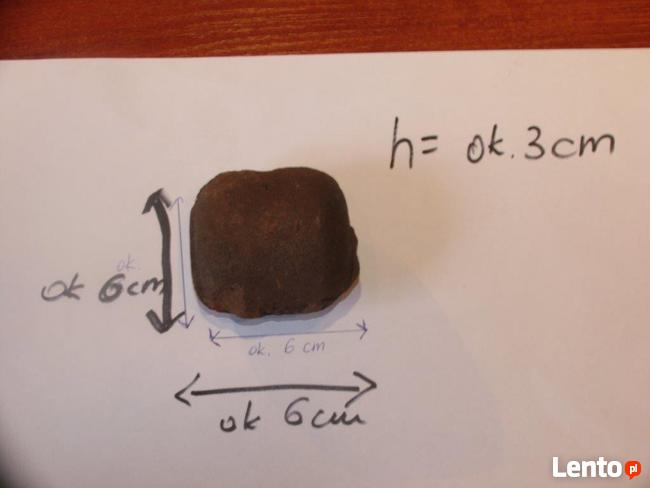 h= ok. 3 cm
ok.
ok 6cm
ok. 6 cm
ok 6cm
Lento.pl